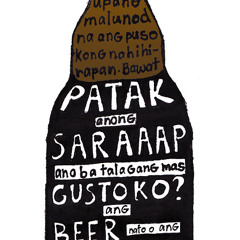 upang
malunod
na ang puso
kong nahihi-
rapan. Bawat
PATAK
anong
SARAAAP
ano ba talagang mas
GUSTO KO?
ang
BEER na to o ang